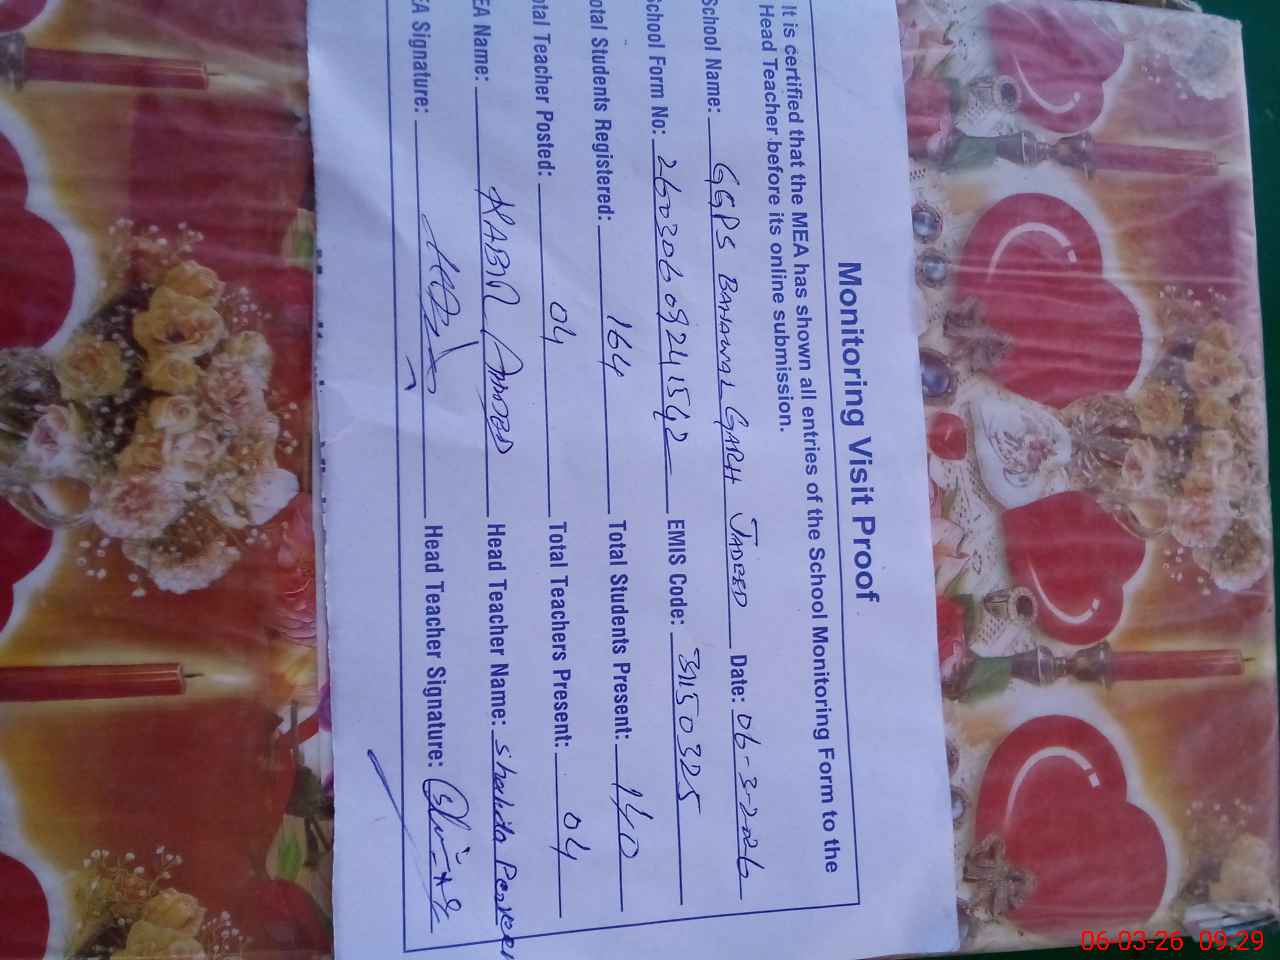 Monitoring Visit Proof
It is certified that the MEA has shown all entries of the School Monitoring Form to the
Head Teacher before its online submission.
School Name: GGPS BAHAWAL GARH JADEED Date: 06-3-2026
School Form No: 26030609241542 EMIS Code: 31150325
otal Students Registered: 164 Total Students Present: 140
otal Teacher Posted: 04 Total Teachers Present: 04
EA Name: KABIR AHMED Head Teacher Name: Shahida Parveen
EA Signature: Head Teacher Signature:
06-03-26 09:29